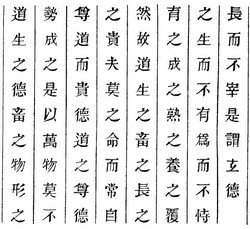 道生之德畜之物形之
勢成之是以萬物莫不
尊道而貴德道之尊德
之貴夫莫之命而常自
然故道生之畜之長之
育之成之熟之養之覆
之生而不有爲而不恃
長而不宰是謂玄德